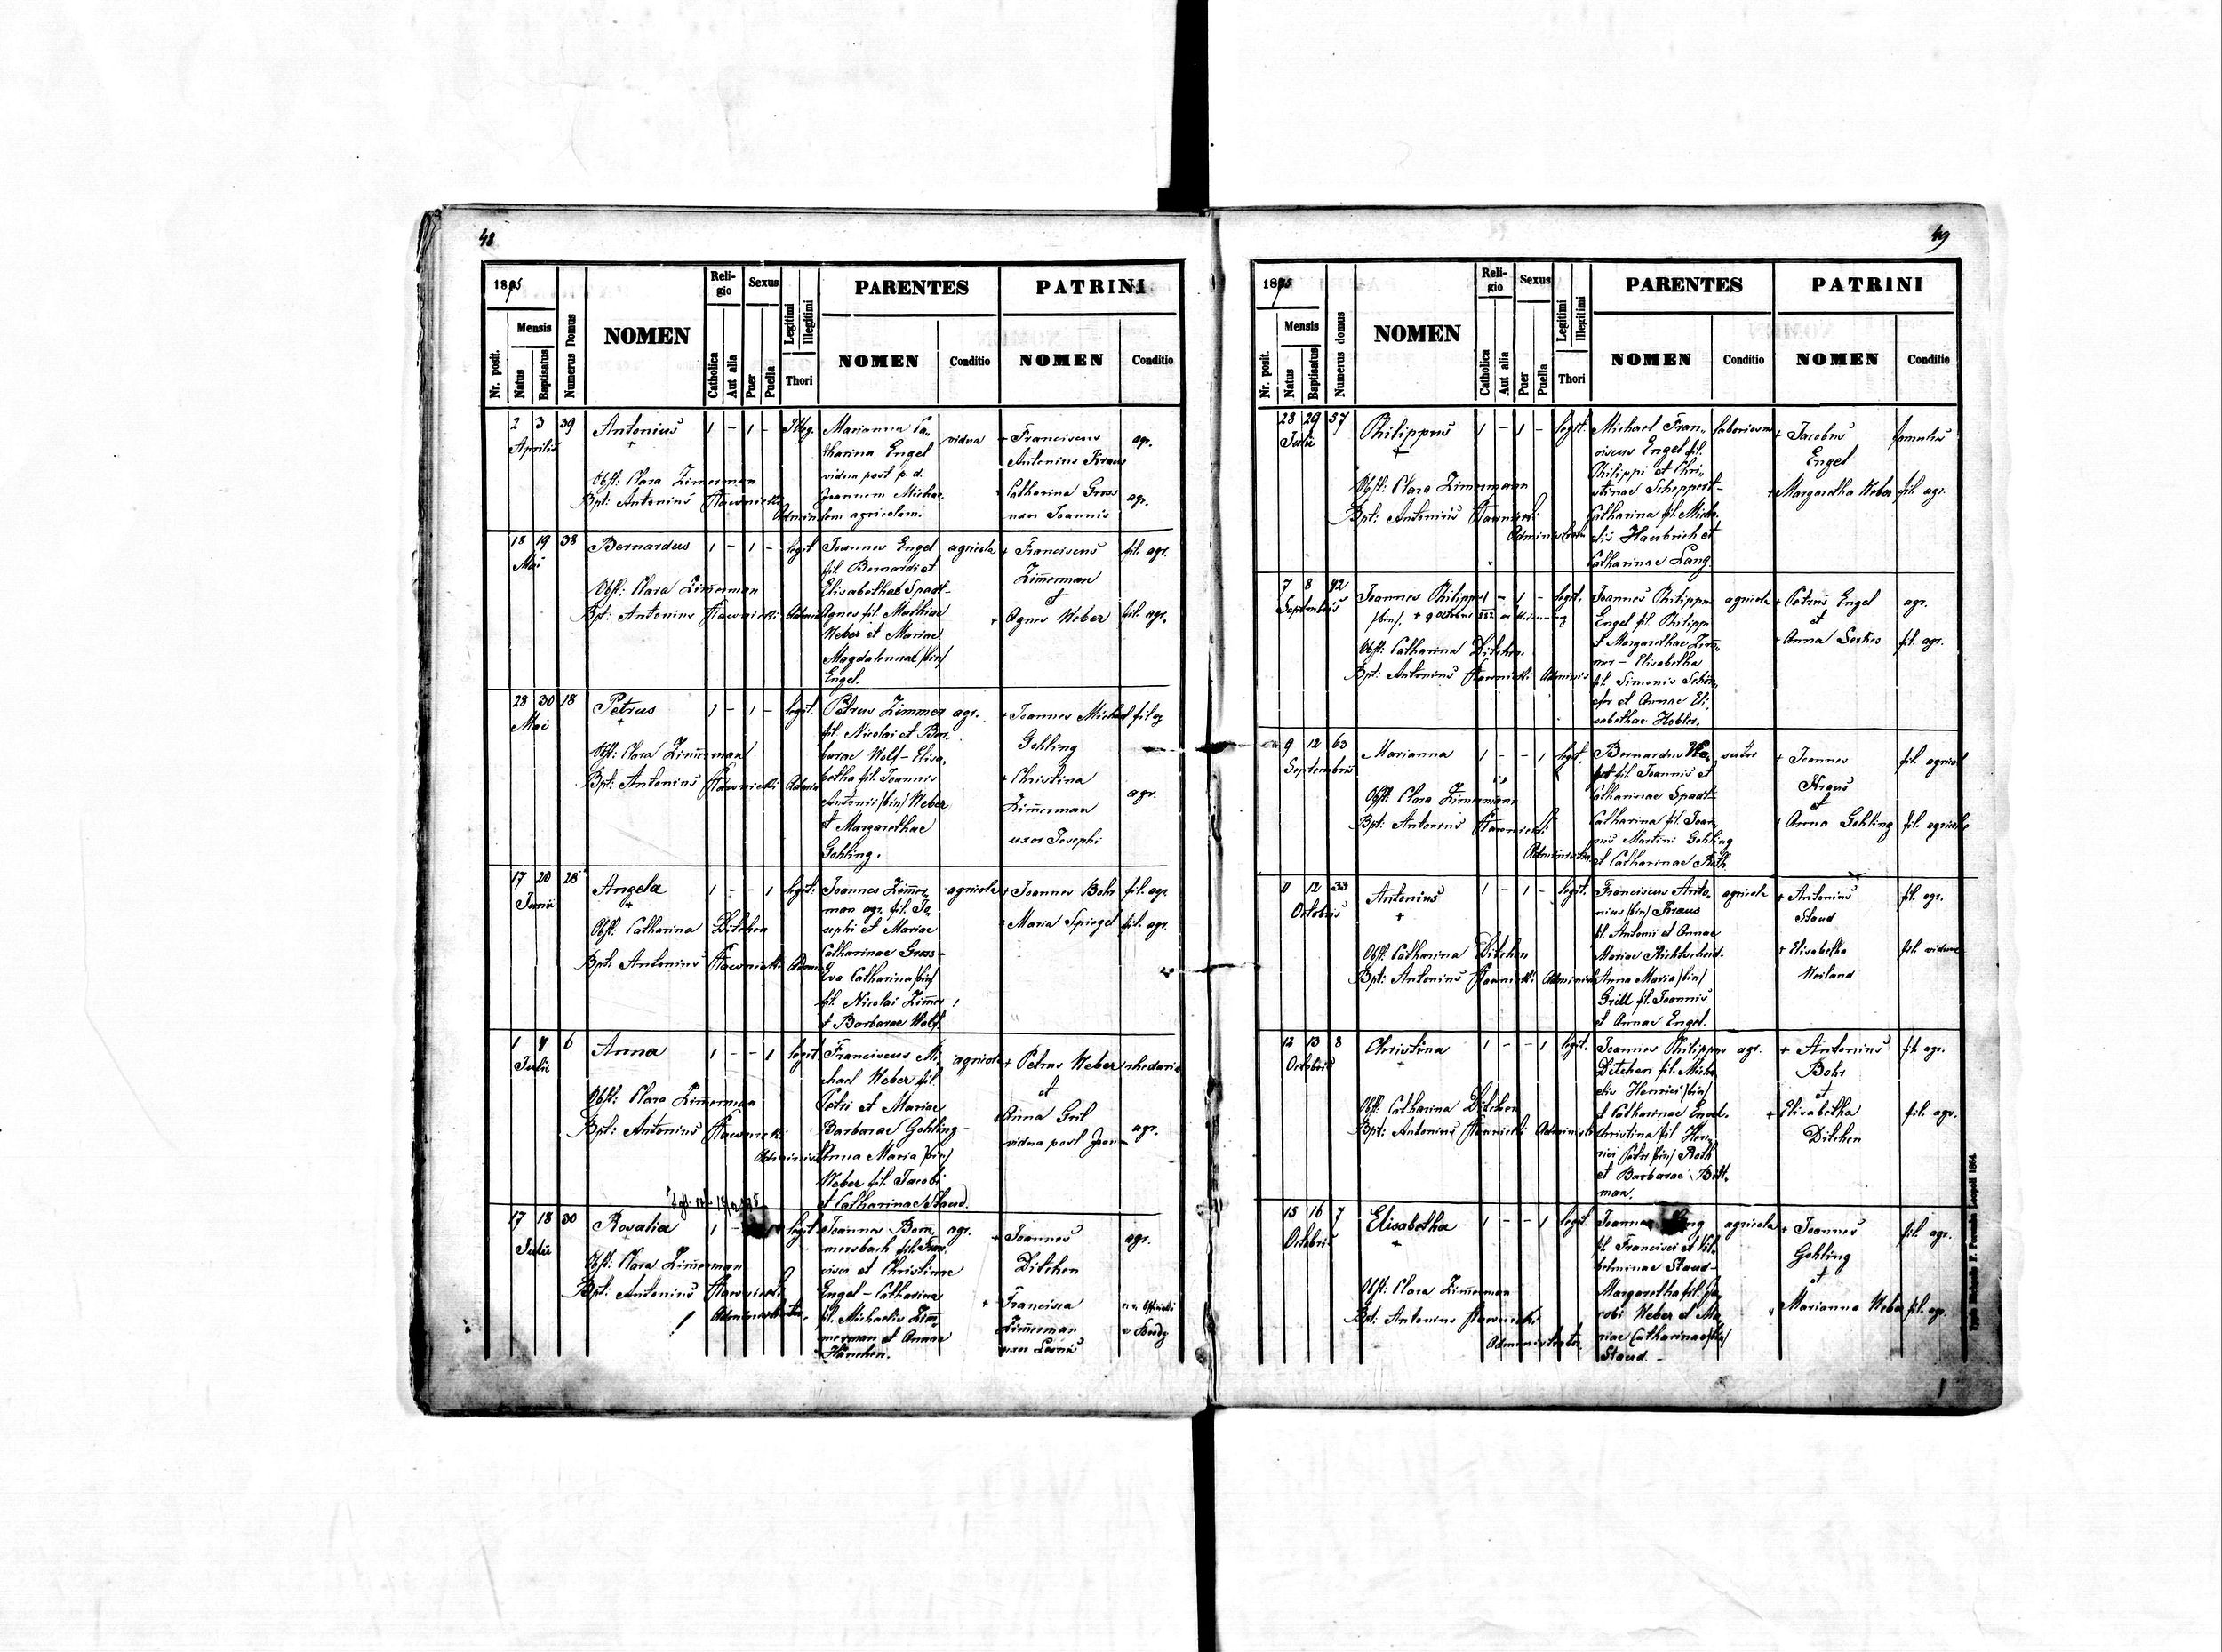 48
1895
Nr. posit.
Mensis
Natus
Baptisatus
Numerus Domus
NOMEN
Religio
Catholica
Aut alia
Sexus
Puer
Puella
Legitimi
Illegitimi
Thori
PARENTES
NOMEN
Conditio
PATRINI
NOMEN
Conditio
2 3 39
Aprilis
Antonius
Obst: Clara Zimerman
Bpt: Antonius
1 - 1 - Illeg.
Marianna Ca-
tharina Engel
vidua post p. d.
Joannem Micha-
lem agricolam.
vidua
+ Franciscus
Antonius Kraus
Catharina Gross
uxor Joannis
agr.
agr.
18 19 38
Mai
Bernardus
Obst: Clara Zimerman
Bpt: Antonius
1 - 1 - legit
Joannes Engel
fil. Bernardi et
Elisabethae Spadt-
Agnes fil. Mathiae
Weber et Mariae
Magdalenae /bin/
Engel.
agricola
+ Franciscus
Zimerman
et
+ Agnes Weber
fil. agr.
fil. agr.
28 30 18
Mai
Petrus
Obst: Clara Zimerman
Bpt: Antonius
1 - 1 - legit.
Petrus Zimmer
fil. Nicolai et Bar-
barae Wolf - Elisa-
betha fil. Joannis
Antonii /bin/ Weber
et Margarethae
Gehling.
agr.
+ Joannes Michael
Gehling
+ Christina
Zimerman
uxor Josephi
fil ag
agr.
17 20 28
Junii
Angela
Obst: Catharina Ditchen
Bpt: Antonius
1 - - 1 legit:
Joannes Zimer-
man agr. fil. Jo-
sephi et Mariae
Catharinae Gross-
Eva Catharina /bin/
fil. Nicolai Zimer
et Barbarae Wolf.
agricola
+ Joannes Bohr
+ Maria Spiegel
fil. agr
fil. agr.
1 4 6
Julii
Anna
Obst: Clara Zimerman
Bpt: Antonius
1 - - 1 legit
Franciscus Mi-
chael Weber fil.
Petri et Mariae
Barbarae Gehling -
Anna Maria /bin/
Weber fil. Jacobi
et Catharinae Staud.
agricola
+ Petrus Weber
et
Anna Gril
vidua post
agr.
17 18 30
Julii
Rosalia
Obst: Clara Zimerman
Bpt: Antonius
1 - 1 legit
Joannes Bom-
mersbach fil. Fran-
cisci et Christinae
Engel - Catharina
fil. Michaelis Zim-
merman et Annae
Hanchen.
agr.
+ Joannes
Ditchen
+ Francisca
Zimerman
agr.
49
1895
Nr. posit.
Mensis
Natus
Baptisatus
Numerus domus
NOMEN
Religio
Catholica
Aut alia
Sexus
Puer
Puella
Legitimi
Illegitimi
Thori
PARENTES
NOMEN
Conditio
PATRINI
NOMEN
Conditio
28 29 57
Julii
Philippus
Obst: Clara Zimermann
Bpt: Antonius
1 - 1 - legit.
Michael Fran-
ciscus Engel fil.
Philippi et Chri-
stinae Scheppert -
Catharina fil. Micha-
elis Haerbrich et
Catharinae Lang.
+ Jacobus
Engel
+ Margaretha Weber
famulus
fil. agr.
7 8 42
Septembris
Joannes Philippus
/bin/.
Obst: Catharina Ditchen
Bpt: Antonius
1 - 1 - legit.
Joannes Philippus
Engel fil. Philippi
et Margarethae Zim-
mer - Elisabetha
fil. Simonis
et Annae Eli-
sabethae Hobler.
agricola
+ Petrus Engel
et
+ Anna Serkes
agr.
fil. agr.
9 12 63
Septembris
Marianna
Obst: Clara Zimermann
Bpt: Antonius
1 - - 1 legit.
Bernardus
fil Joannis et
Catharinae Spadt-
Catharina fil. Joan-
nis Martini Gehling
et Catharinae Roth.
sutor
+ Joannes
Kraus
et
+ Anna Gehling
fil. agricol
fil. agricolae
11 12 33
Octobris
Antonius
Obst: Catharina Ditchen
Bpt: Antonius
1 - 1 - legit.
Franciscus Anto-
nius /bin/ Kraus
fil. Antonii et Annae
Mariae Richtscheid.
Anna Maria /bin/
Grill fil. Joannis
et Annae Engel.
agricola
+ Antonius
Staud
+ Elisabetha
Weiland
fil. agr.
fil. viduae
12 13 8
Octobris
Christina
Obst: Catharina Ditchen
Bpt: Antonius
1 - - 1 legit.
Joannes Philippus
Ditchen fil. Micha-
elis Henrici /bin/
et Catharinae Engel.
Christina fil. Hen-
rici Petri /bin/ Roth
et Barbarae Bitt-
man.
agr.
+ Antonius
Bohr
et
+ Elisabetha
Ditchen
fil. agr.
fil. agr.
15 16 7
Octobris
Elisabetha
Obst: Clara Zimerman
Bpt: Antonius
1 - - 1 legit.
fil. Francisci et Vil-
helminae Staud -
Margaretha fil. Ja-
cobi Weber et Ma-
riae Catharinae
Staud. -
agricola
+ Joannes
Gehling
et
+ Marianna Weber
fil. agr.
fil. agr.